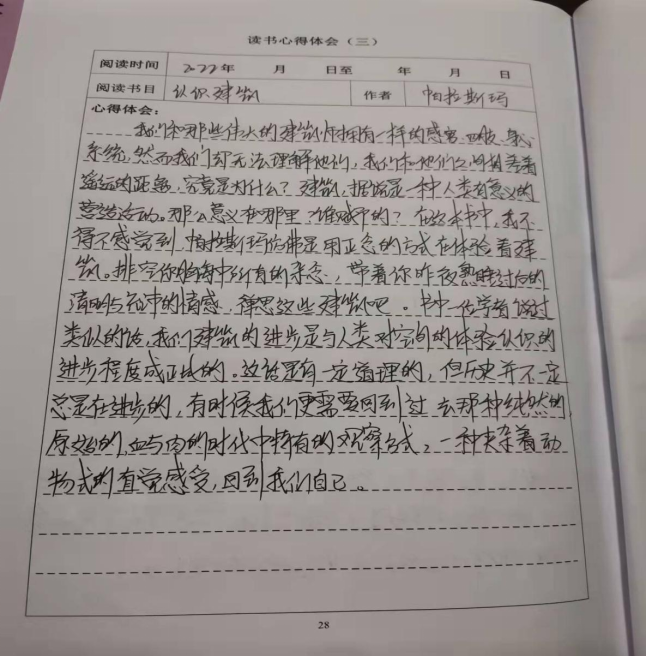 读书心得体会（三）
阅读时间 2022年 月 日至 年 月 日
阅读书目 认识建筑 作者 帕拉斯玛
心得体会：
我们和那些伟大的建筑师拥有一样的感官、四肢、
系统，然而我们却无法理解他们，我们和他们之间有着
遥远的距离，究竟是为什么？建筑，据说是一种人类有意义的
营造活动。那么意义在那里？谁赋予的？在这本书中，我不
得不感觉到，帕拉斯玛仿佛是用正念的方式在体验着建
筑。排空你脑海中所有的杂念，带着你昨夜熟睡过后的
清明与 中的情感，释思这些建筑吧。书中一位学者说过
类似的话，我们建筑的进步是与人类对空间的体验认识的
进步程度成正比的。这话是有一定道理的，但历史并不一定
总是在进步的，有时候我们更需要回到过去那种纯然的，
原始的，血与肉的时代中特有的观察方式，一种夹杂着动
物式的直觉感受，回到我们自己。
28